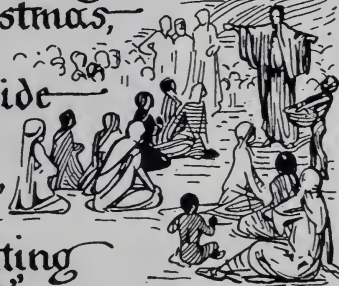 stmas,
ide
,
ting
"